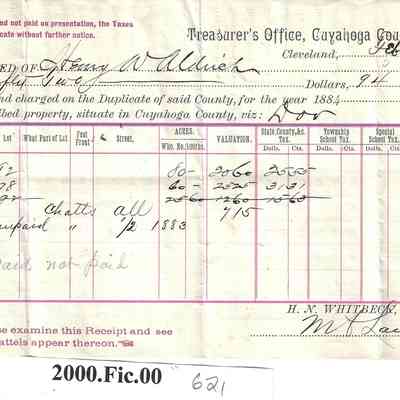 nd not paid on presentation, the Taxes
icate without further notice.
Treasurer's Office, Cuyahoga Cou
Cleveland, Feb
ED OF Henry W Aldrich
fty Two Dollars, 94
nd charged on the Duplicate of said County, for the year 1884
ibed property, situate in Cuyahoga County, viz: Dov
Lot What Part of Lot Feet Front Street, ACRES. Who. No. 100ths. VALUATION. State, County, &c. Tax. Dolls. Cts. Township School Tax. Dolls. Cts. Special School Tax. Dolls.
92 80- 2060 2555
78 60- 2525 3131
92 2560 1260 1560
Chatts all 715
unpaid " 1/2 1883
aid not paid
H. N. WHITBECK
se examine this Receipt and see
attels appear thereon.
2000.Fic.00 621